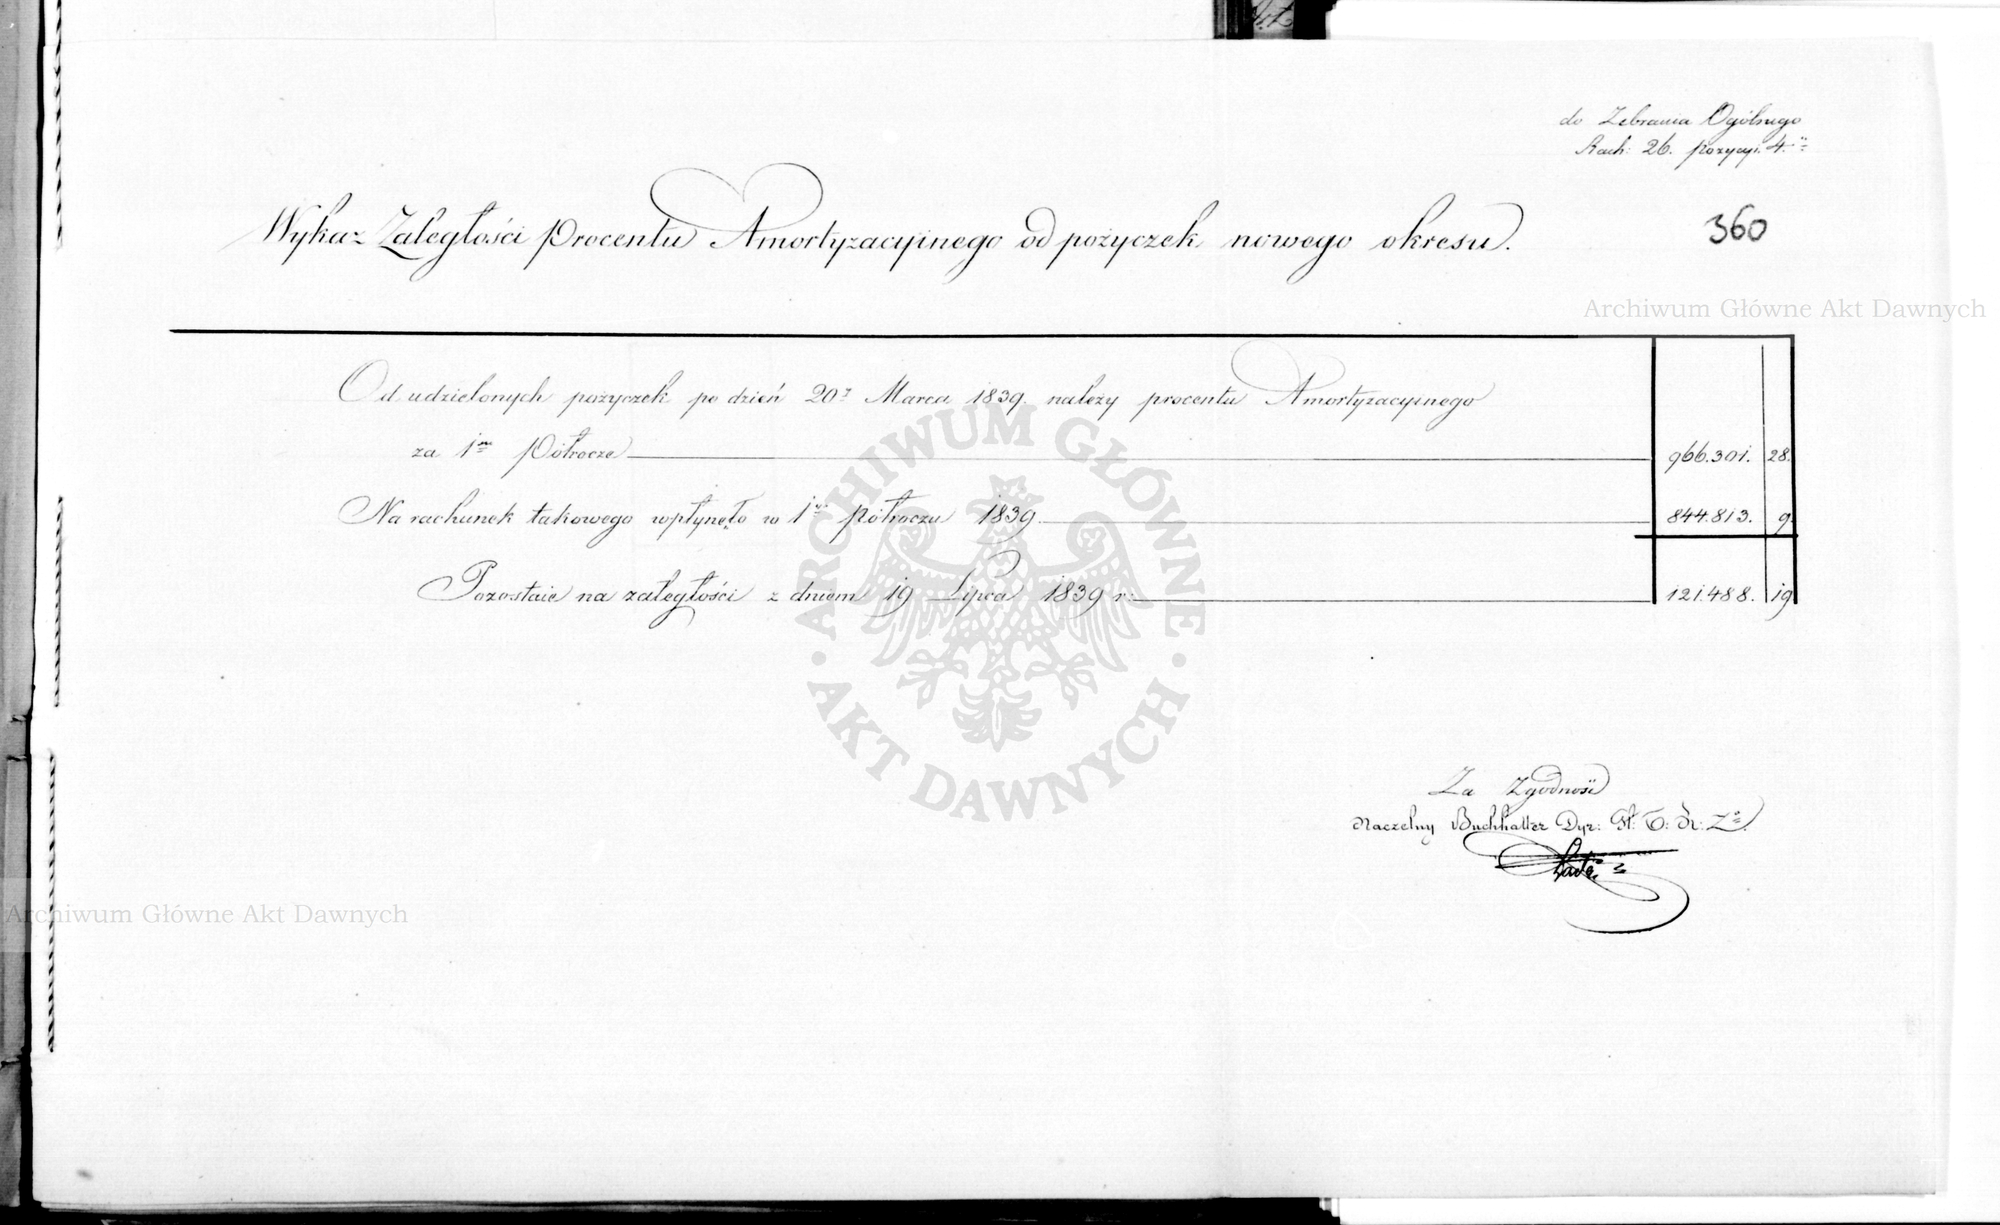 do Zebrania Ogólnego
Rach: 26. pozycyi 4.
360
Wykaz Zaległości Procentu Amortyzacyinego od pożyczek nowego okresu.
Archiwum Główne Akt Dawnych
Od udzielonych pożyczek po dzień 20 Marca 1839. należy procentu Amortyzacyinego
za 1sze Półrocze 966.301. 28.
Na rachunek takowego wpłynęło w 1m Półroczu 1839 844.813. 9.
Pozostaie na zaległości z dniem 19 Lipca 1839 r: 121.488. 19
ARCHIWUM GŁÓWNE
AKT DAWNYCH
Za Zgodność
Naczelny Buchhalter Dyr: Gł: T: K: Zo
Archiwum Główne Akt Dawnych